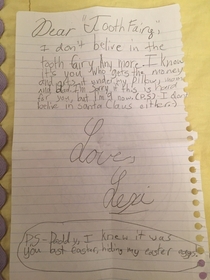 Dear "Tooth Fairy,"
I don't belive in the
tooth fairy any more. I know
it's you who gets the money
and puts it under my pillow
and I'm sorry if this is
for you, but I'm 9 now (P.S) I don't
belive in santa Claus either:)
Love,
Lexi
P.S- Daddy, I knew it was
you last easter, hiding my easter eggs.